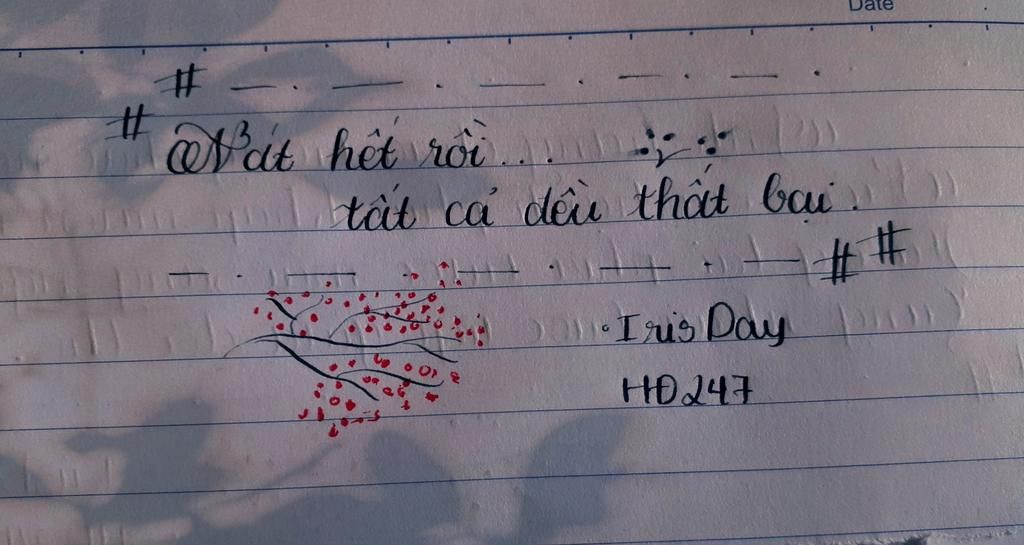 Date
# — . — . — . — . — .
# Nát hết rồi...
tất cả đều thất bại.
— . — . — . — . — # #
. Iris Day
HĐ247